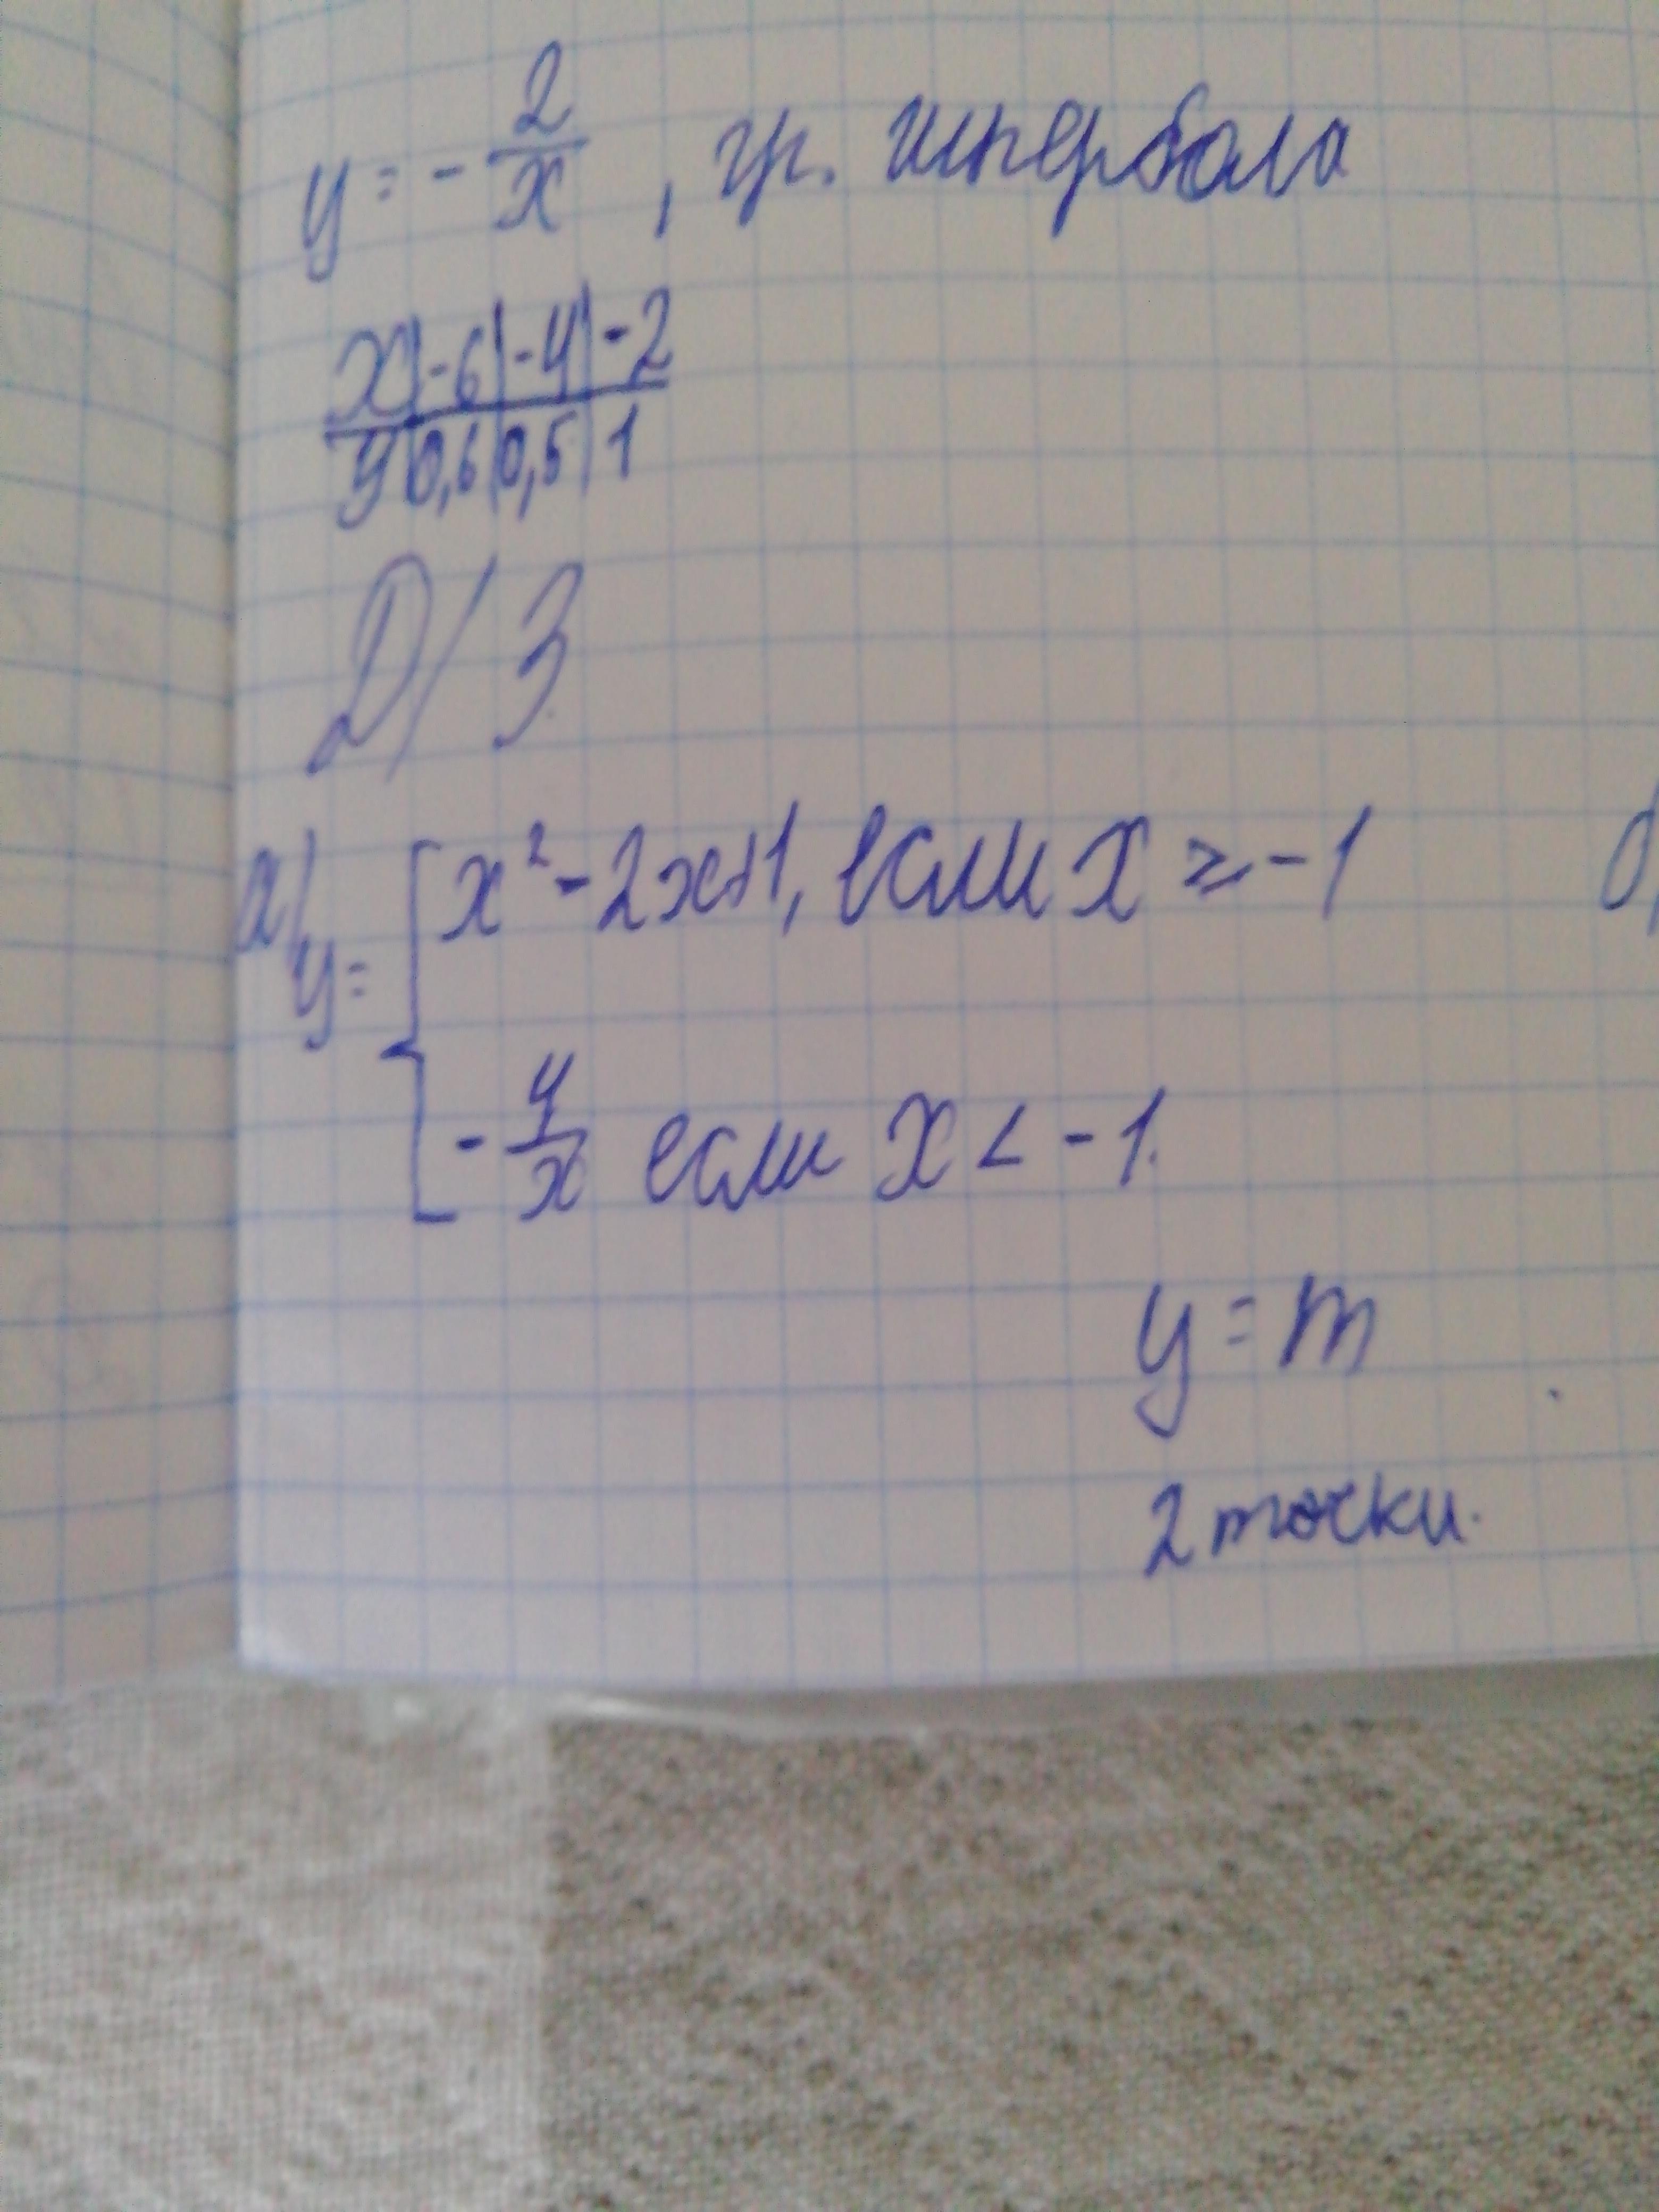 y = - 2/x , гр. гипербола
x | -6 | -4 | -2
y | 0,6 | 0,5 | 1
Д/З
а) y = { x² - 2x + 1, если x ≥ -1
- 4/x если x < -1.
y = m
2 точки.